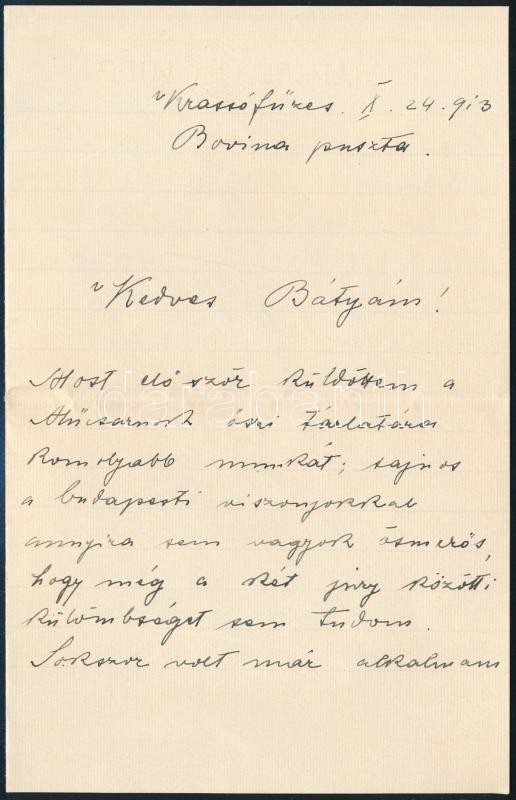 Krassófüzes. X. 24. 913
Bovina puszta.
Kedves Bátyám!
Most először küldöttem a
Műcsarnok őszi tárlatára
komolyabb munkát; sajnos
a budapesti viszonyokkal
annyira sem vagyok ösmerős,
hogy még a két jury közötti
külömbséget sem tudom.
Sokszor volt már alkalmam
darabanth